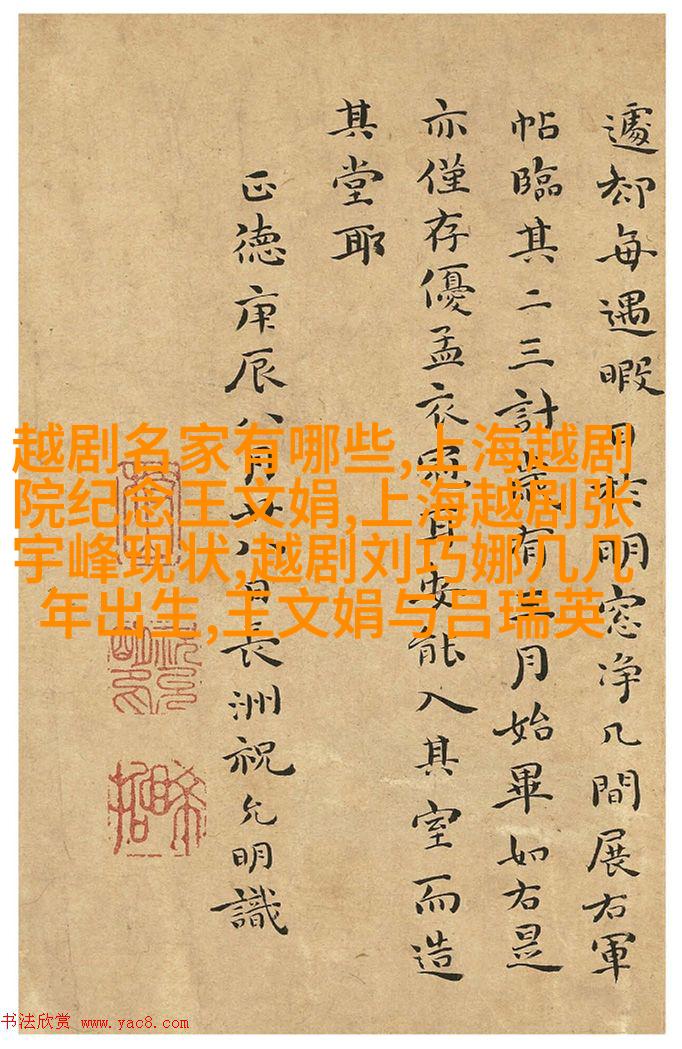 遽却每遇暇日於明窓净几間展右軍
帖臨其二三計歲有月始畢如右是
亦僅存優孟衣冠耳安能入其室而造
其堂耶
正德庚辰八月廿八日長洲祝允明識
越剧名家有哪些,上海越剧
院纪念王文娟,上海越剧张
宇峰现状,越剧刘巧娜几几
年出生,王文娟与吕瑞英
书法欣赏 www.yac8.com